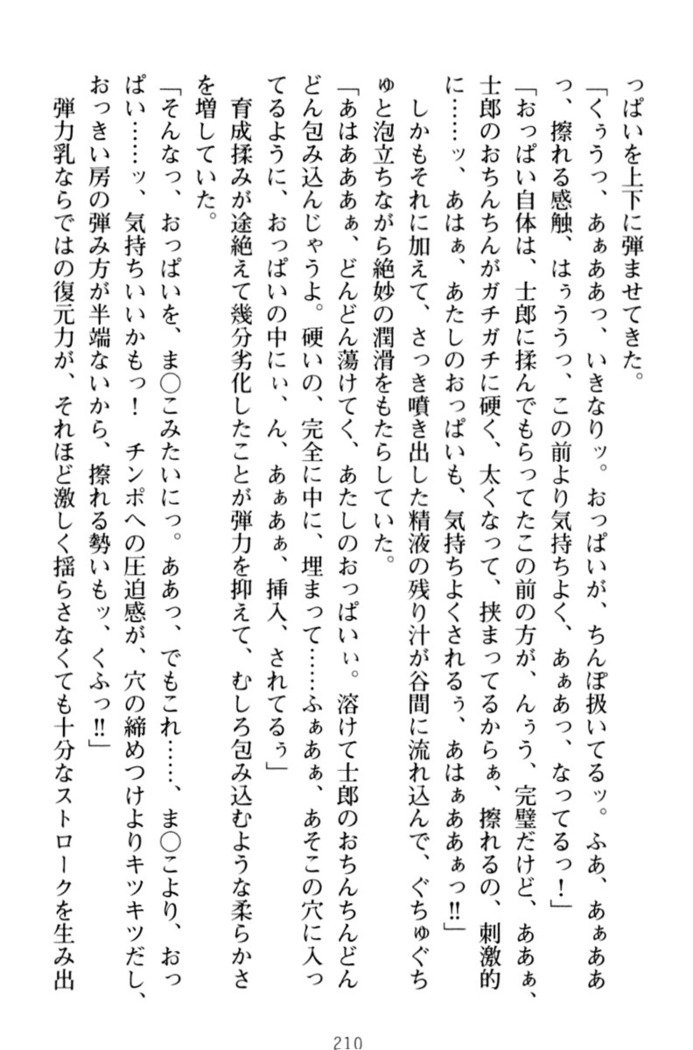 っぱいを上下に弾ませてきた。
「くぅうっ、あぁああっ、いきなりッ。おっぱいが、ちんぽ扱いてるッ。ふあ、あぁああ
っ、擦れる感触、はぅううっ、この前より気持ちよく、あぁあっ、なってるっ！」
「おっぱい自体は、士郎に揉んでもらってたこの前の方が、んぅう、完璧だけど、ああぁ、
士郎のおちんちんがガチガチに硬く、太くなって、挟まってるからぁ、擦れるの、刺激的
に……ッ、あはぁ、あたしのおっぱいも、気持ちよくされるぅ、あはぁああぁっ!!」
しかもそれに加えて、さっき噴き出した精液の残り汁が谷間に流れ込んで、ぐちゅぐち
ゅと泡立ちながら絶妙の潤滑をもたらしていた。
「あはあああぁ、どんどん蕩けてく、あたしのおっぱいぃ。溶けて士郎のおちんちんどん
どん包み込んじゃうよ。硬いの、完全に中に、埋まって……ふぁあぁ、あそこの穴に入っ
てるように、おっぱいの中にぃ、ん、あぁあぁ、挿入、されてるぅ」
育成揉みが途絶えて幾分劣化したことが弾力を抑えて、むしろ包み込むような柔らかさ
を増していた。
「そんなっ、おっぱいを、ま〇こみたいにっ。ああっ、でもこれ……、ま〇こより、おっ
ぱい……ッ、気持ちいいかもっ！　チンポへの圧迫感が、穴の締めつけよりキツキツだし、
おっきい房の弾み方が半端ないから、擦れる勢いもッ、くふっ!!」
弾力乳ならではの復元力が、それほど激しく揺らさなくても十分なストロークを生み出
210